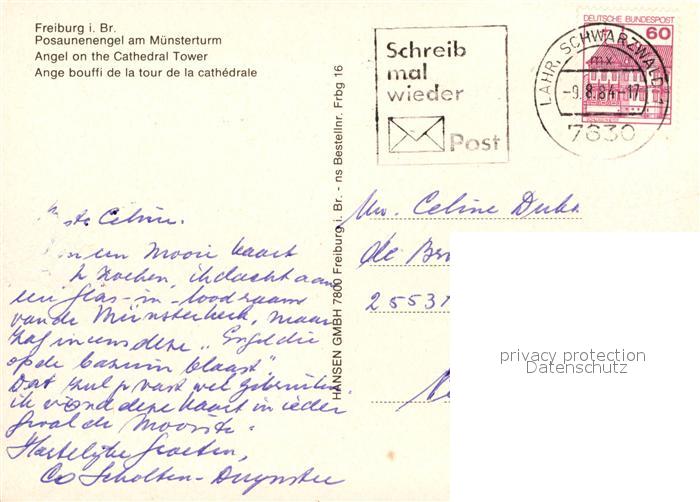 Freiburg i. Br.
Posaunenengel am Münsterturm
Angel on the Cathedral Tower
Ange bouffi de la tour de la cathédrale
Schreib
mal
wieder
Post
DEUTSCHE BUNDESPOST
60
LAHR, SCHWARZWALD 1
mx
-9.8.84-17
7630
HANSEN GMBH 7800 Freiburg i. Br. - ns Bestellnr. Frbg 16
Celine.
een Mooie kaart
zoeken, ik dacht aan
een glas-in-lood raam
van de Münsterkerk, maar
zag ineens deze "Engel die
op de bazuin blaast"
Dat zul je vast wel gebruiken
ik vond deze kaart in ieder
geval de Mooiste.
Hartelijke Groeten,
Co Scholten-
Mw. Celine
de
2553
privacy protection
Datenschutz